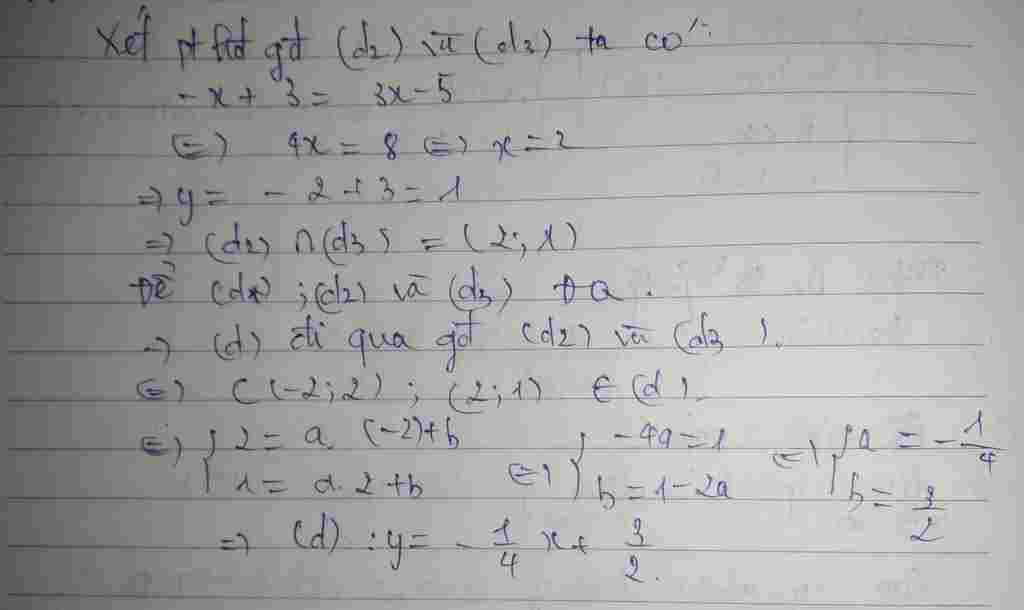 Xét pt hđ gđ (d2) và (d3) ta có:
-x + 3 = 3x - 5
<=> 4x = 8 <=> x = 2
=> y = - 2 + 3 = 1
=> (d2) ∩ (d3) = (2; 1)
Để ; (d2) và (d3)
=> (d) đi qua gđ (d2) và (d3).
<=> C(-2; 2) ; (2; 1) ∈ (d).
<=> { 2 = a (-2) + b <=> { -4a = 1 <=> { a = -1/4
1 = a.2 + b b = 1 - 2a b = 3/2
=> (d) : y = -1/4 x + 3/2.